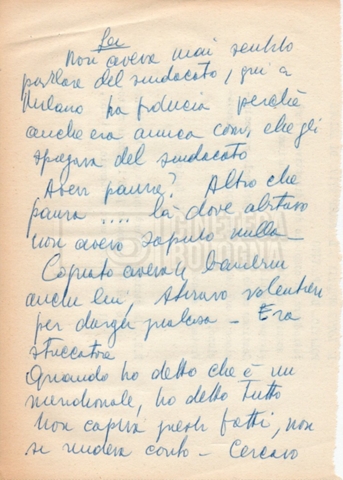 Lei
Non aveva mai sentito
parlare del sindacato, qui a
Milano ha fiducia perché
anche era amica con, che gli
spiegava del sindacato
Aver paura? Altro che
paura .... là dove abitavo
non avevo saputo nulla -
aveva bambini
anche lui, stiravo volentieri
per dargli qualcosa - Era
stuccatore
Quando ho detto che è un
meridionale, ho detto tutto
Non capiva questi fatti, non
si rendeva conto - Cercavo
CINETECA
BOLOGNA